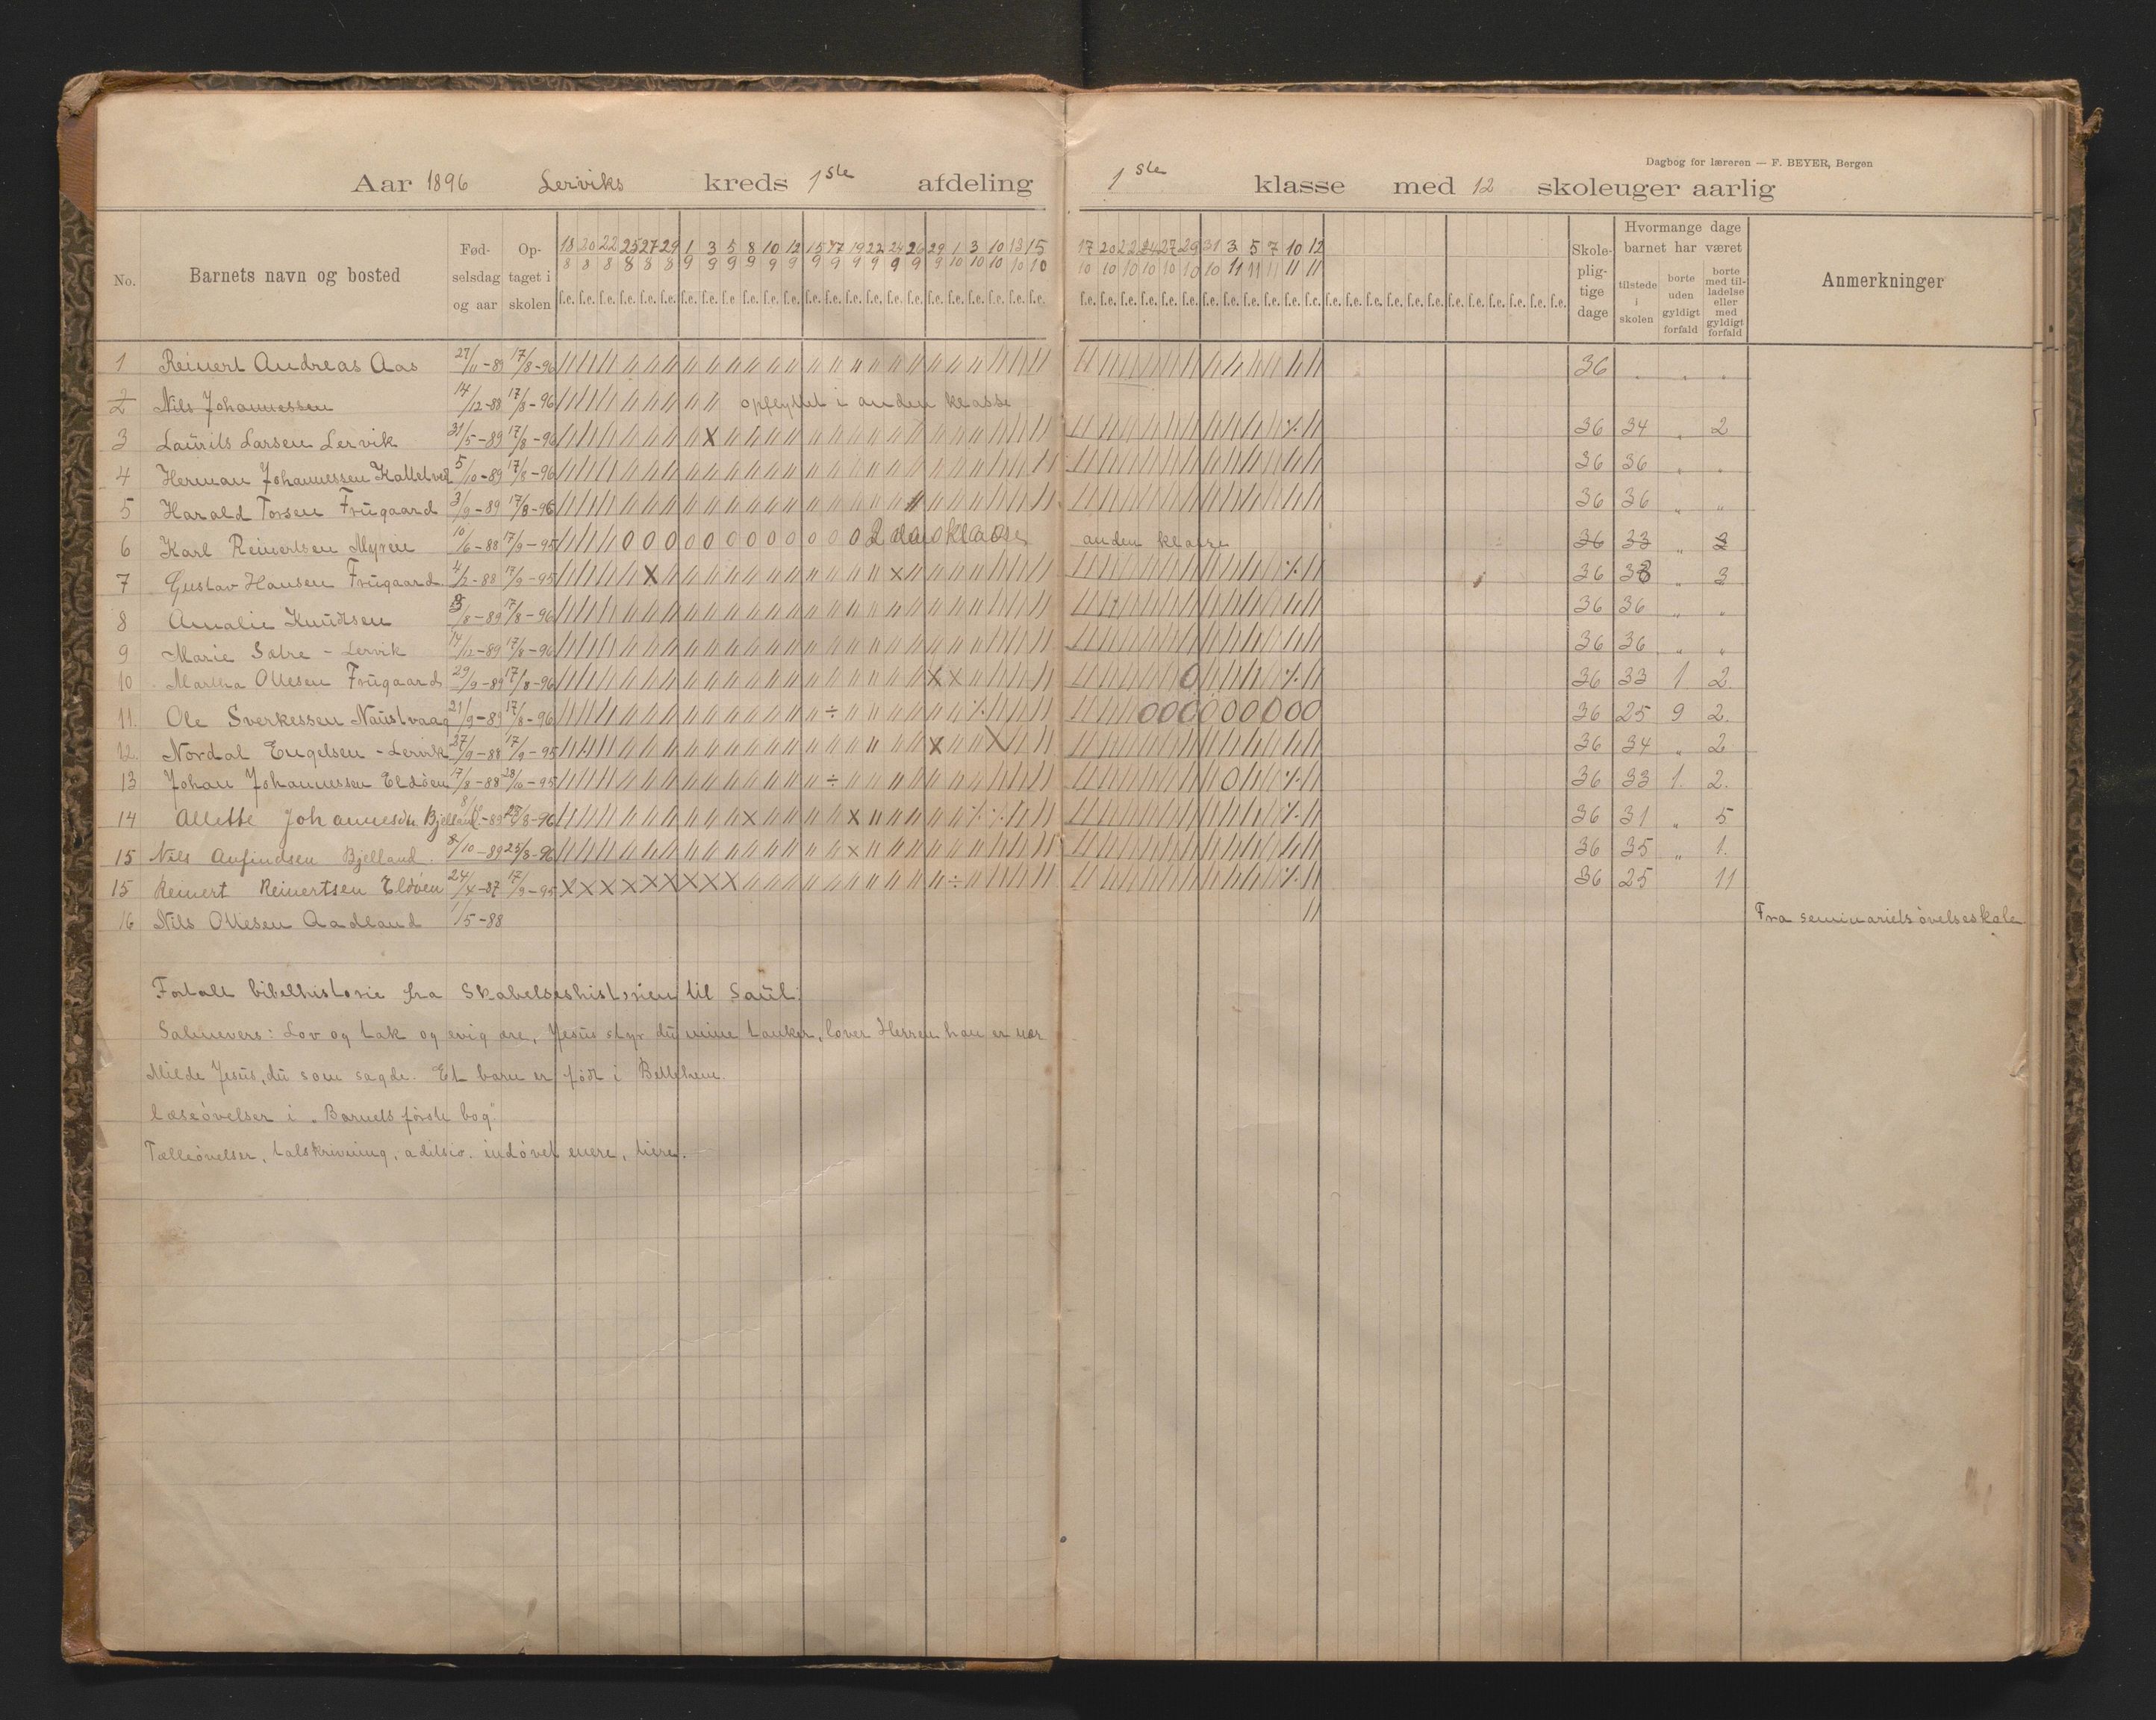 Dagbog for læreren — F. BEYER, Bergen
Aar 1896 Lerviks kreds 1ste afdeling 1ste klasse med 12 skoleuger aarlig
No. Barnets navn og bosted Fødselsdag og aar Optaget i skolen Skolepligtige dage Hvormange dage barnet har været Anmerkninger
tilstede i skolen borte uden gyldigt forfald borte med tilladelse eller med gyldigt forfald
18 20 22 25 27 29 1 3 5 8 10 12 15 17 19 22 24 26 29 1 3 10 13 15 17 20 22 24 27 29 31 3 5 7 10 12
8 8 8 8 8 8 9 9 9 9 9 9 9 9 9 9 9 9 9 10 10 10 10 10 10 10 10 10 10 10 10 11 11 11 11 11
f.e. f.e. f.e. f.e. f.e. f.e. f.e. f.e. f.e. f.e. f.e. f.e. f.e. f.e. f.e. f.e. f.e. f.e. f.e. f.e. f.e. f.e. f.e. f.e. f.e. f.e. f.e. f.e. f.e. f.e. f.e. f.e. f.e. f.e. f.e. f.e. f.e. f.e. f.e. f.e. f.e. f.e. f.e. f.e. f.e. f.e. f.e. f.e.
1 Reinert Andreas Aas 27/11-89 17/8-96 36 . . .
2 Nils Johannessen 14/12-88 17/8-96 opflyttet i anden klasse
3 Laurits Larsen Lervik 31/5-89 17/8-96 36 34 „ 2
4 Herman Johannessen Kattelved 5/10-89 17/8-96 36 36 „ „
5 Harald Torsen Frugaard 3/9-89 17/8-96 36 36 „ „
6 Karl Reinertsen Myreie 10/6-88 17/9-95 2den klasse anden klasse 36 33 „ 3
7 Gustav Hansen Frugaard 4/2-88 17/9-95 36 33 „ 3
8 Amalie Knudsen /8-89 17/8-96 36 36 „ „
9 Marie Sætre - Lervik 14/12-89 17/8-96 36 36 „ „
10 Martha Ottesen Frugaard 29/9-89 17/8-96 36 33 1 2.
11. Ole Sverkessen Naustvaag 21/9-89 17/8-96 36 25 9 2.
12. Nordal Engelsen - Lervik 27/9-88 17/9-95 36 34 „ 2
13 Johan Johannessen Eldøen 17/8-88 28/10-95 36 33 1. 2.
14 Allette Johannesdn Bjelland -89 25/8-96 36 31 „ 5
15 Nils Anfindsen Bjelland. 8/10-89 25/8-96 36 35 „ 1.
15 Reinert Reinertsen Eldøen 24/4-87 17/9-95 36 25 11
16 Nils Ottesen Aadland 1/5-88 Fra seminariets øvelseskole
Fortalt bibelhistorie fra Skabelseshistorien til Saul.
Salmevers: Lov og tak og evig ære, Jesus styr du mine tanker, lover Herren han er nær
Milde Jesus, du som sagde. Et barn er født i Betlehem.
Læseøvelser i „Barnets første bog"
Tælleøvelser, talskrivning, aditsio. indøvet enere, tiere.